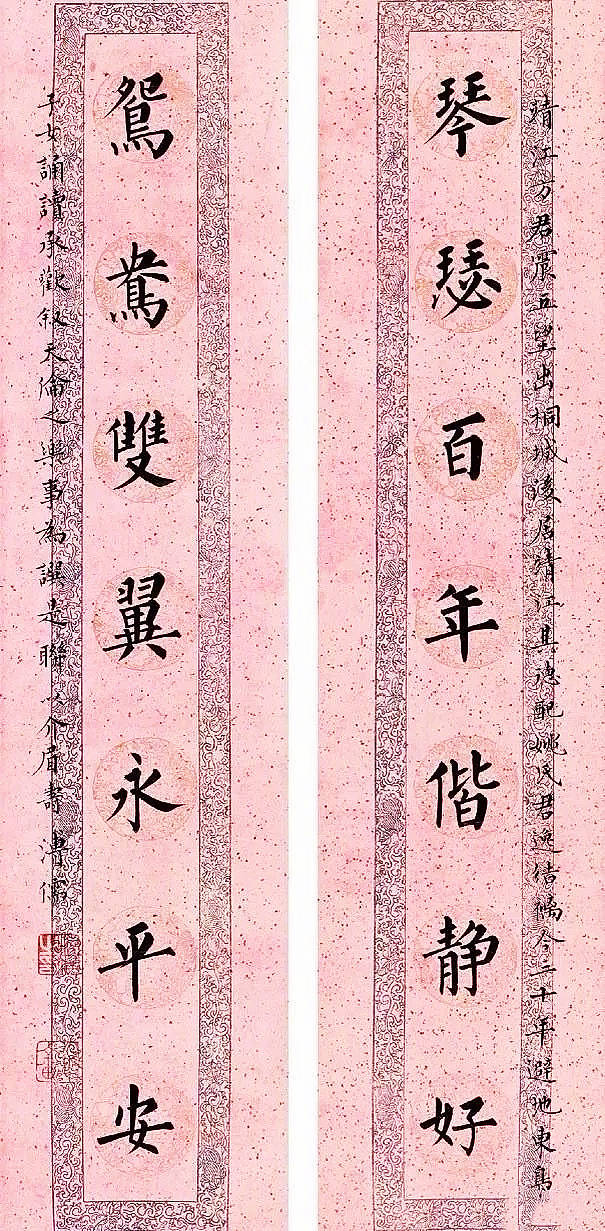 靖江方君震五望出桐城後居靖江其德配姚氏君逸结缡今二十年避地東島
琴瑟百年偕静好
鴛鴦雙翼永平安
子女誦讀承歡敘天倫之樂事為譔是聯以介眉壽 溥儒